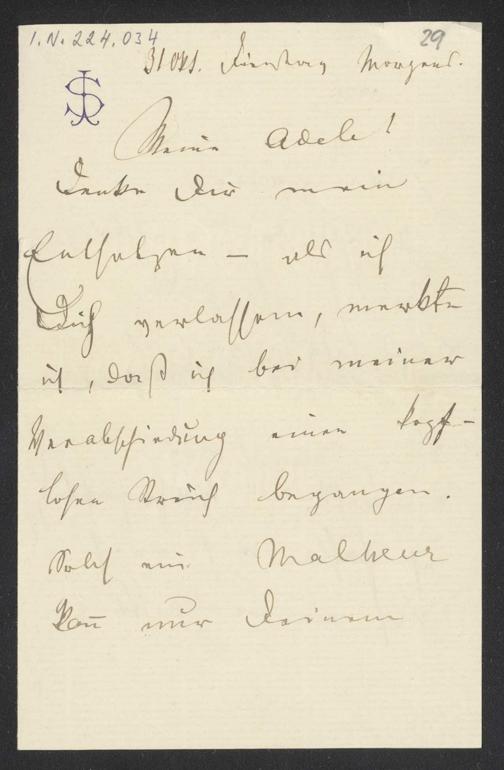 I.N. 224.034
29
31 Okt. Dienstag Morgens.
JS
Meine Adele!
Denke Dir mein
Entsetzen – als ich
Dich verlassen, merkte
ich, daß ich bei meiner
Verabschiedung einen kopf-
losen Streich begangen.
Solch ein Malheur
kañ nur Deinem